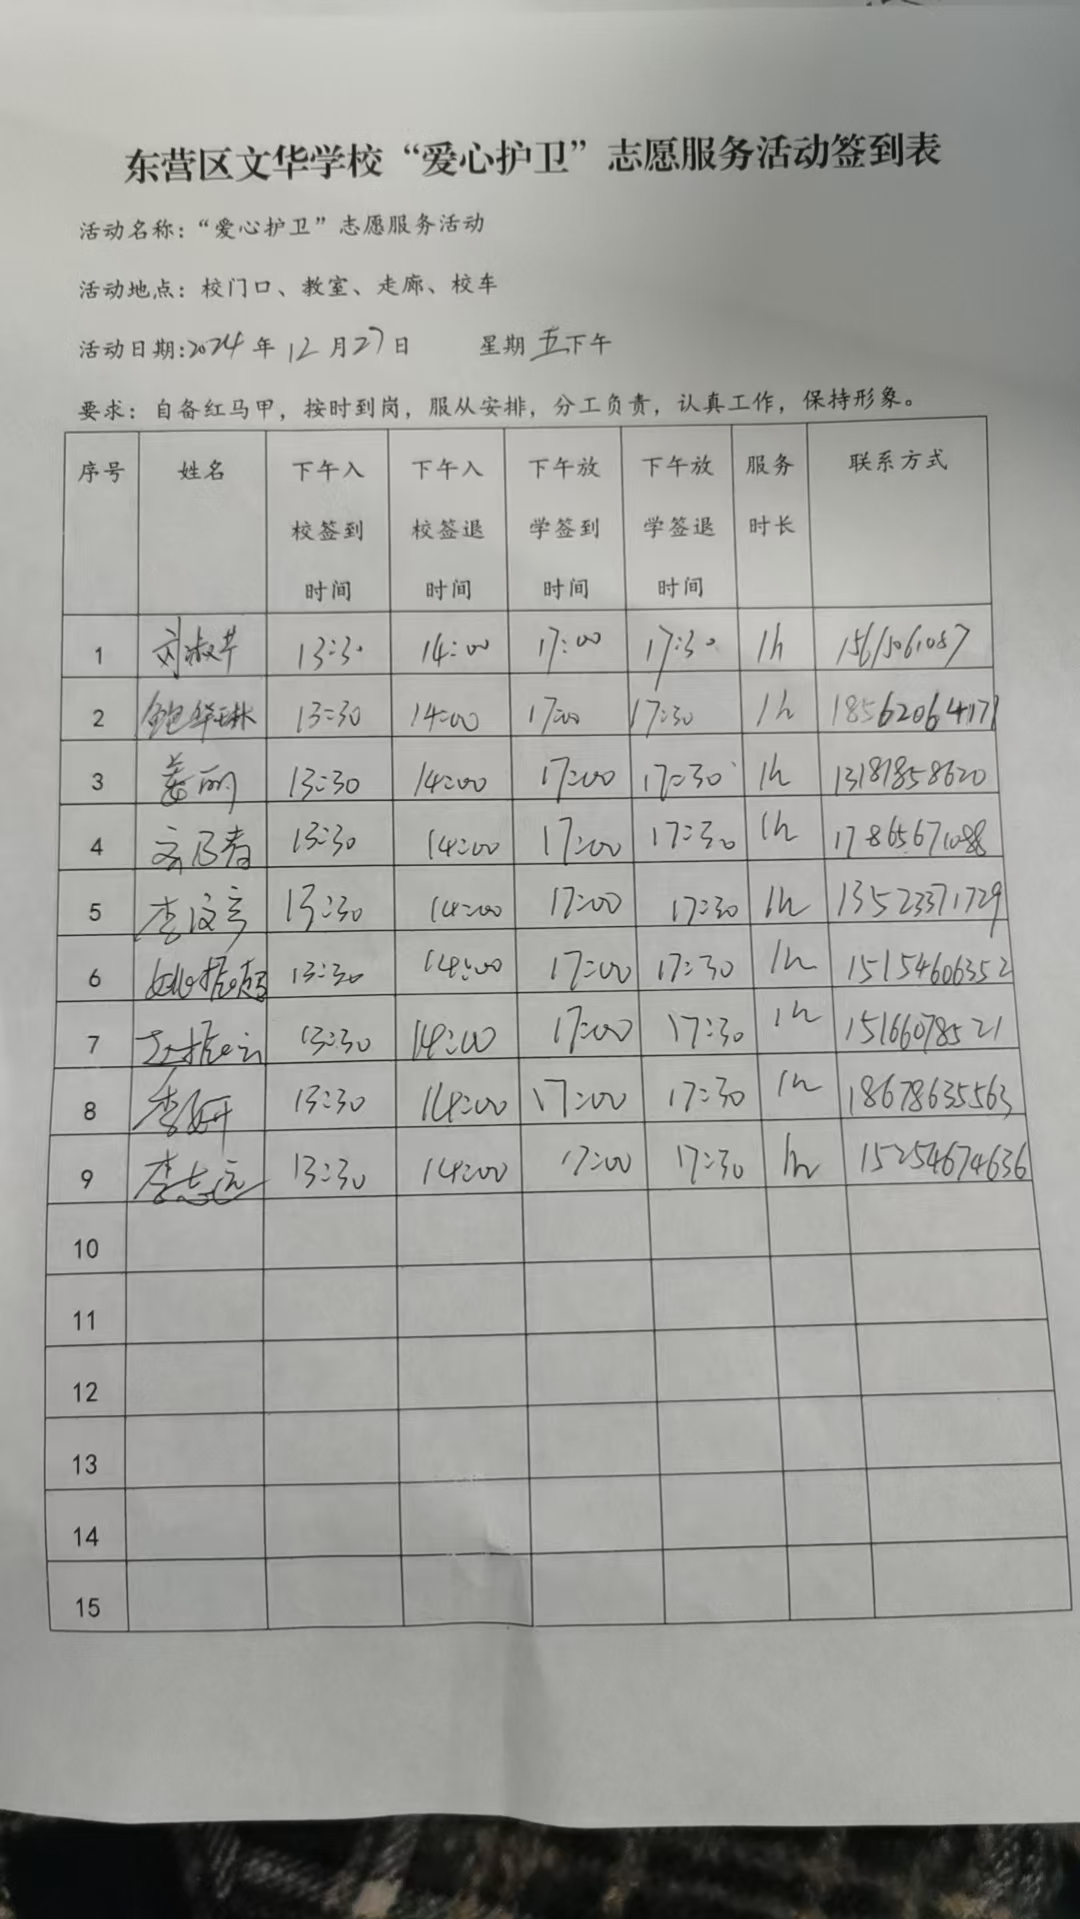 东营区文华学校“爱心护卫”志愿服务活动签到表
活动名称：“爱心护卫”志愿服务活动
活动地点：校门口、教室、走廊、校车
活动日期:2024年12月27日 星期五下午
要求：自备红马甲，按时到岗，服从安排，分工负责，认真工作，保持形象。
序号 姓名 下午入校签到时间 下午入校签退时间 下午放学签到时间 下午放学签退时间 服务时长 联系方式
1 刘淑芹 13:30 14:00 17:00 17:30 1h
2 13:30 14:00 17:00 17:30 1h 18562064171
3 姜丽 13:30 14:00 17:00 17:30 1h 13181858620
4 13:30 14:00 17:00 17:30 1h 17865671088
5 13:30 14:00 17:00 17:30 1h 13523371729
6 姚振超 13:30 14:00 17:00 17:30 1h 15154606352
7 13:30 14:00 17:00 17:30 1h 15166078521
8 李妍 13:30 14:00 17:00 17:30 1h 18678635563
9 李志远 13:30 14:00 17:00 17:30 1h 15254674636
10
11
12
13
14
15